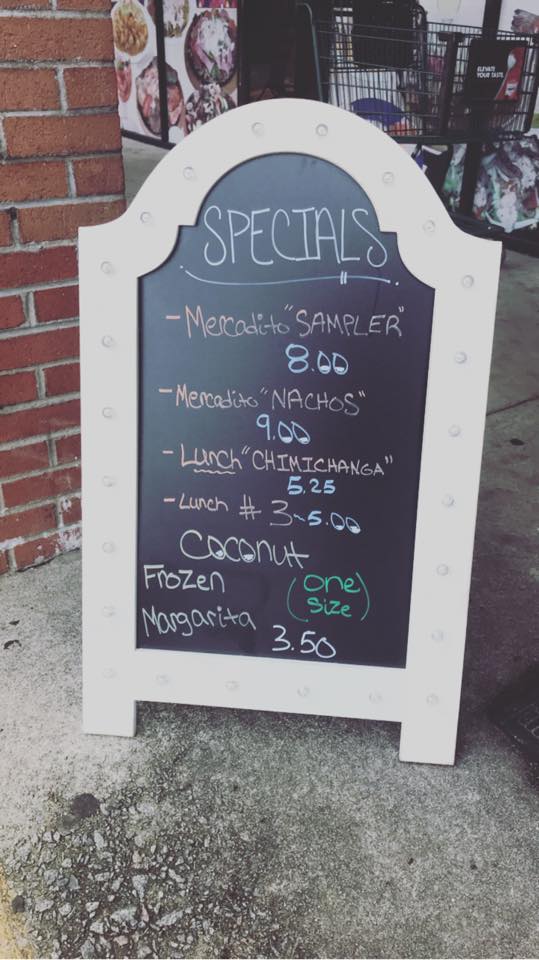 ELEVATE
YOUR TASTE
SPECIALS
- Mercadito "SAMPLER"
8.00
- Mercadito "NACHOS"
9.00
- Lunch "CHIMICHANGA"
5.25
- Lunch # 3 - 5.00
Coconut
Frozen (one
Margarita size)
3.50